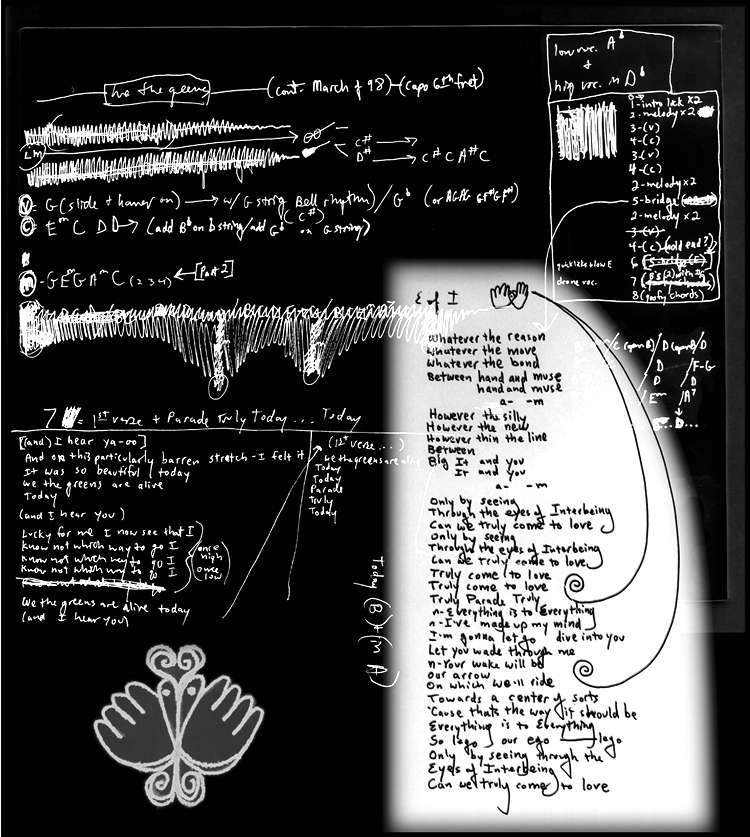 We the greens (cont. March of 98) - (capo 6th fret)
Lm
C#
D# → C# C A# C
V = G (slide + hamer on) → w/ G string Bell rhythm) / Gb (or AGAG GF#GF#)
C = Em C D D → (add Bb on b string/add Gb (C#) on G string)
m - G Em G Am C (2 3 4) ← [Part 2]
7 = 1st verse + Parade Truly Today... Today
[(and) I hear ya-oo]
And on this particularly barren stretch - I felt it
It was so beautiful today
We the greens are alive
Today
(and I hear you)
Lucky for me I now see that I
Know not which way to go I
Know not which way to go I
Know not which way to go I
(once high once low)
We the greens are alive today
(and I hear you)
(1st verse...)
We the greens are alive
Today
Today
Parade
Truly
Today
Today (B) + (in A)
low voc. Ab
+
hig voc. in Db
1 - intro lick x2
2 - melody x2
3 - (v)
4 - (c)
3 - (v)
4 - (c)
2 - melody x2
5 - bridge
2 - melody x2
3 - (v)
4 - (c) (old end?)
6
7
8 (goofy chords)
drone voc.
E of I
Whatever the reason
Whatever the move
Whatever the bond
Between hand and muse
hand and muse
a- -m
However the silly
However the new
However thin the line
Between
Big It and you
It and you
a- -m
Only by seeing
Through the eyes of Interbeing
Can we truly come to love
Only by seeing
Through the eyes of Interbeing
Can we truly come to love
Truly come to love
Truly come to love
Truly Parade Truly
n-Everything is to Everything
n-I've made up my mind
I'm gonna let go dive into you
Let you wade through me
n-Your wake will be
our arrow
On which we'll ride
Towards a center of sorts
'Cause thats the way it should be
Everything is to Everything
So lego our ego lego
Only by seeing through the
Eyes of Interbeing
Can we truly come to love